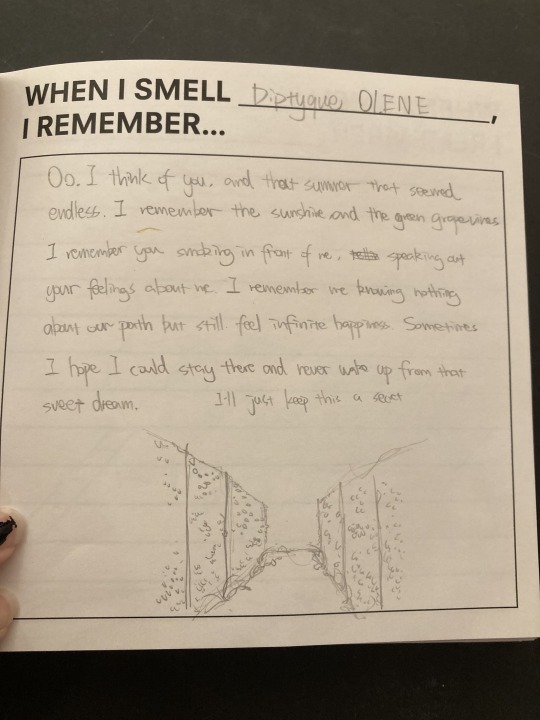 WHEN I SMELL Diptyque, OLENE,
I REMEMBER...
Oo. I think of you. and that summer that seemed
endless. I remember the sunshine and the green grapevines
I remember you smoking in front of me, speaking out
your feelings about me. I remember me knowing nothing
about our path but still feel infinite happiness. Sometimes
I hope I could stay there and never wake up from that
sweet dream. I'll just keep this a secret